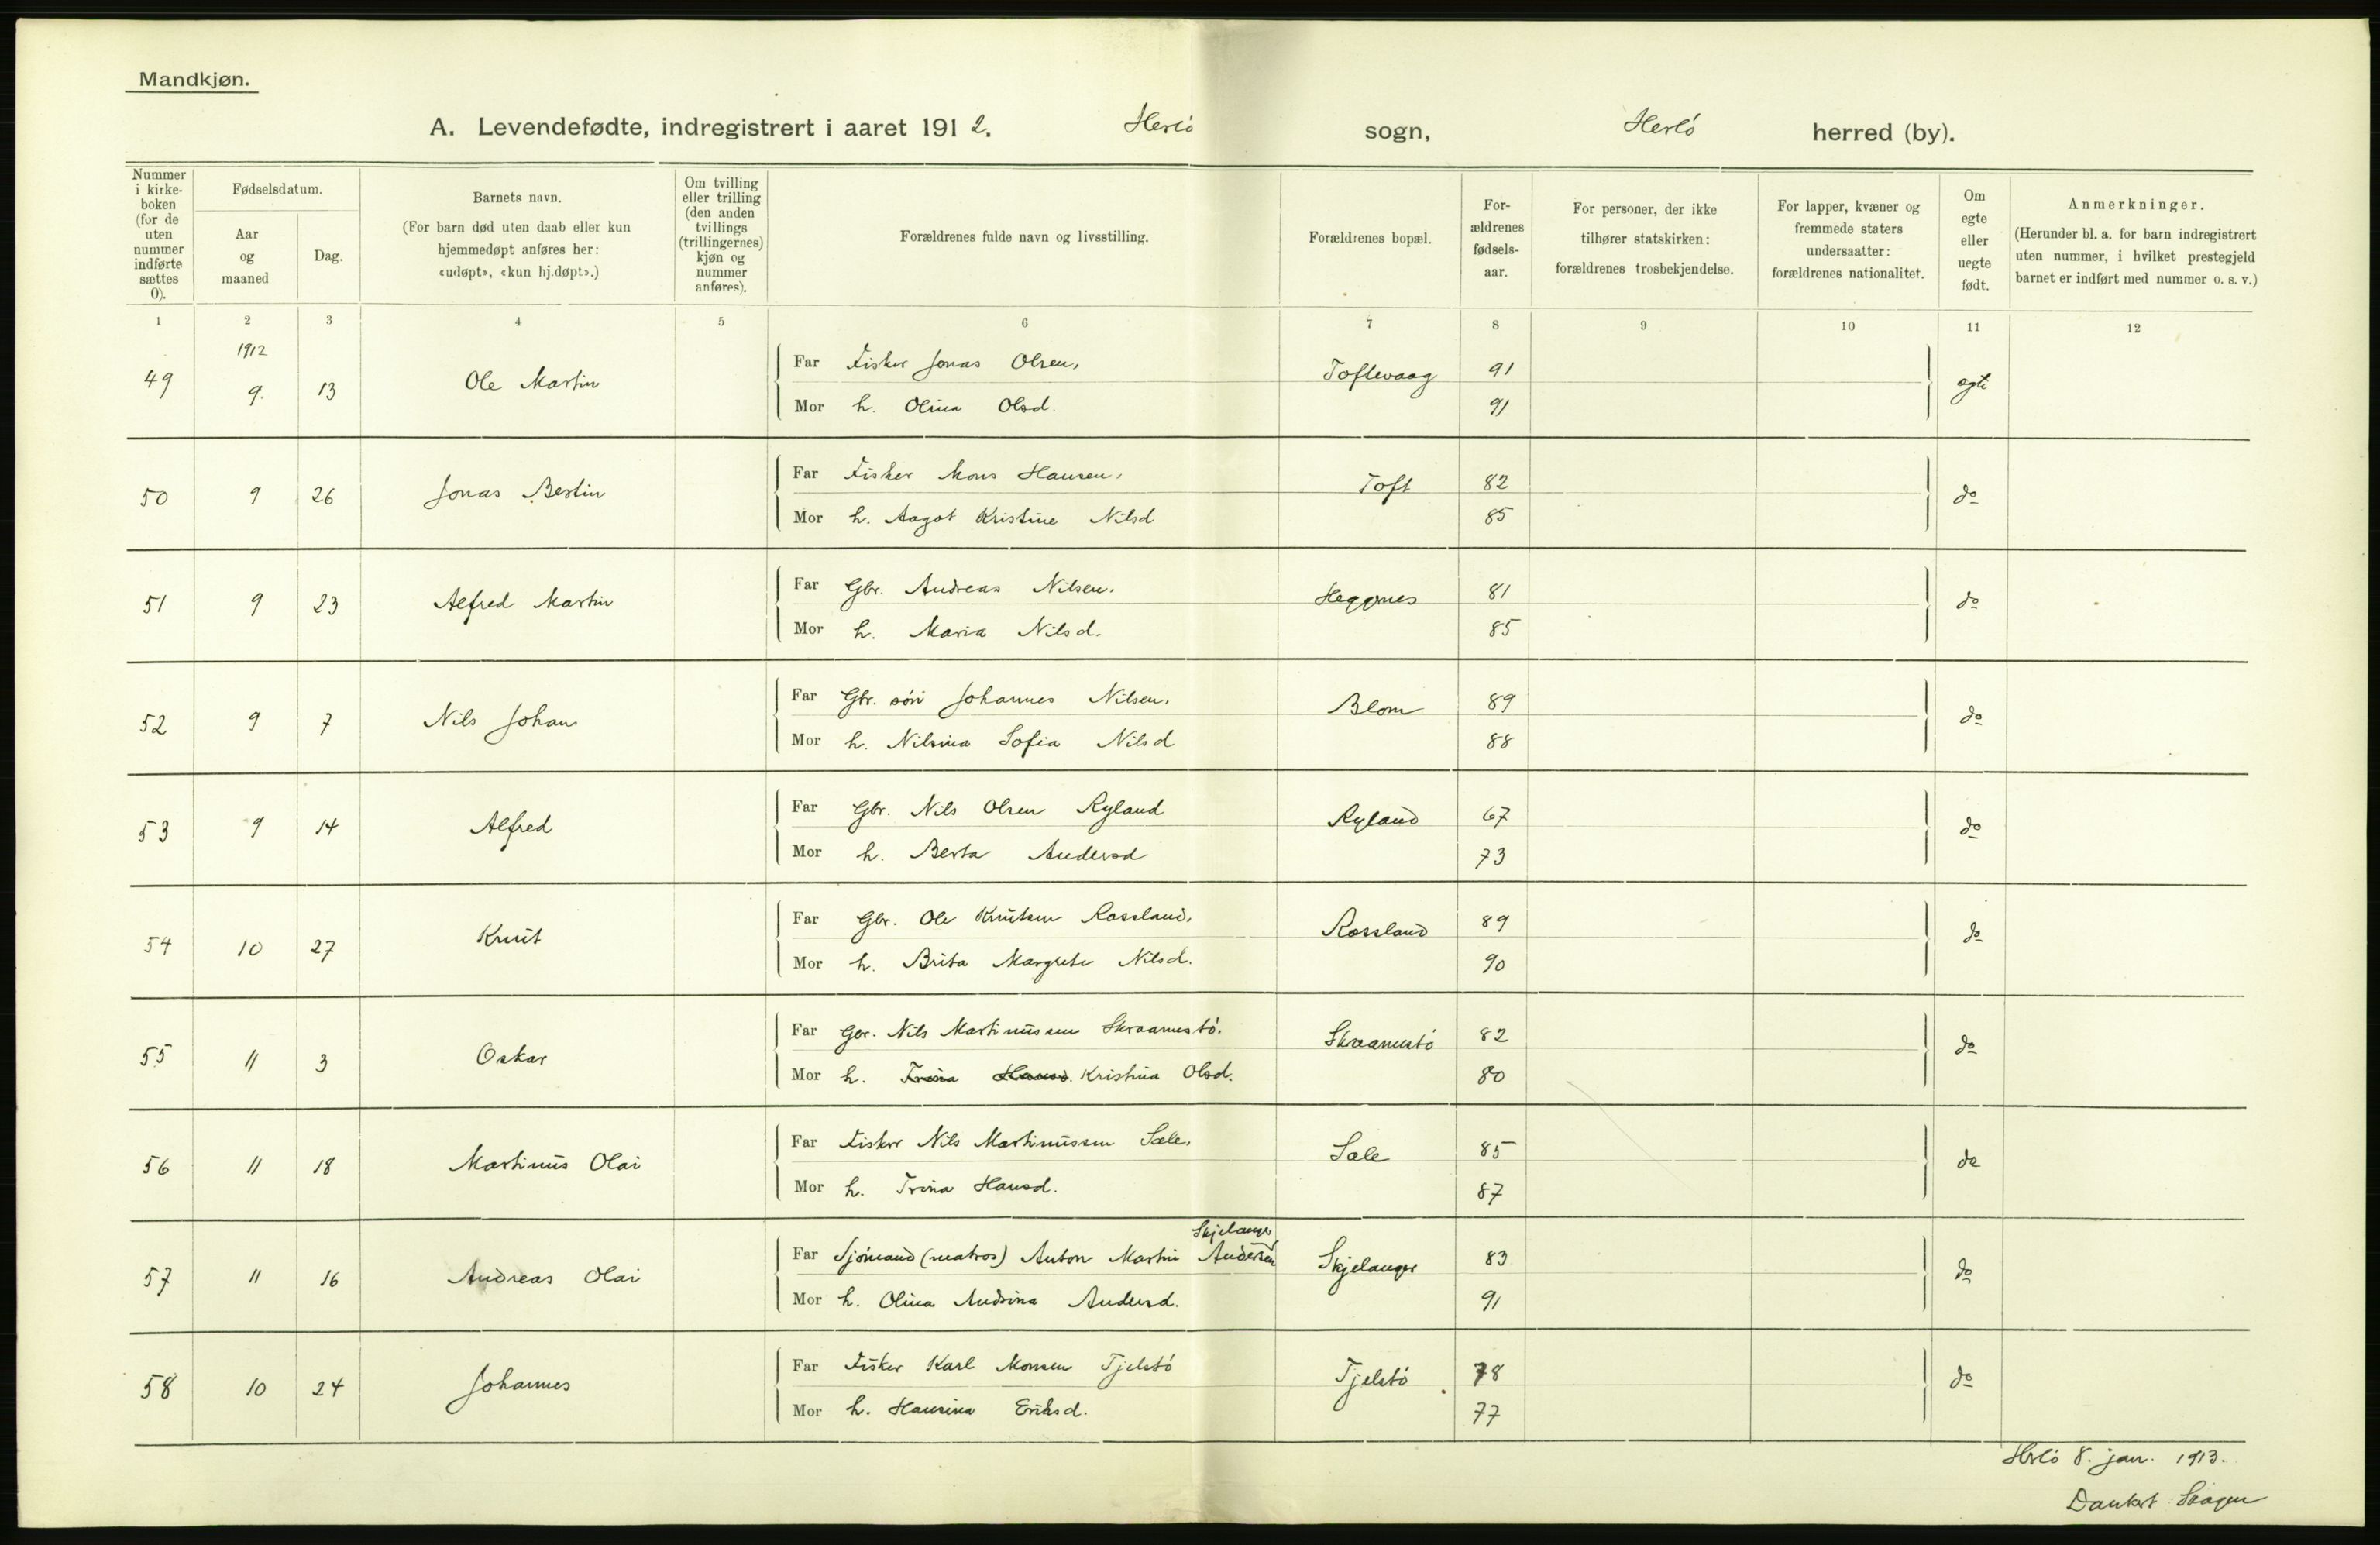 Mandkjøn.
A. Levendefødte, indregistrert i aaret 1912. Herlö sogn, Herlö herred (by).
Nummer i kirkeboken (for de uten nummer indførte sættes 0).
Fødselsdatum.
Aar og maaned
Dag.
Barnets navn.
(For barn død uten daab eller kun hjemmedøpt anføres her: «udøpt», «kun hj.døpt».)
Om tvilling eller trilling (den anden tvillings (trillingernes) kjøn og nummer anføres).
Forældrenes fulde navn og livsstilling.
Forældrenes bopæl.
Forældrenes fødselsaar.
For personer, der ikke tilhører statskirken: forældrenes trosbekjendelse.
For lapper, kvæner og fremmede staters undersaatter: forældrenes nationalitet.
Om egte eller uegte født.
Anmerkninger.
(Herunder bl. a. for barn indregistrert uten nummer, i hvilket prestegjeld barnet er indført med nummer o. s. v.)
1 2 3 4 5 6 7 8 9 10 11 12
1912
49 9. 13 Ole Martin Far Fisker Jonas Olsen, Toftevaag 91 egte
Mor h. Olina Olsd. 91
50 9 26 Jonas Bertin Far Fisker Mons Hansen, Toft 82 do
Mor h. Aagot Kristine Nilsd 85
51 9 23 Alfred Martin Far Gbr. Andreas Nilsen. Heggnes 81 do
Mor h. Maria Nilsd. 85
52 9 7 Nils Johan Far Gbr. sön Johannes Nilsen. Blom 89 do
Mor h. Nilsina Sofia Nilsd 88
53 9 14 Alfred Far Gbr. Nils Olsen Ryland Ryland 67 do
Mor h. Berta Andersd 73
54 10 27 Knut Far Gbr. Ole Knutsen Rossland, Rossland 89 do
Mor h. Brita Margrete Nilsd. 90
55 11 3 Oskar Far Gbr. Nils Martinussen Skraamestö. Skraamestö 82 do
Mor h. Trina Hansd. Kristina Olsd. 80
56 11 18 Martinus Olai Far Fisker Nils Martinussen Sæle, Sæle 85 do
Mor h. Trina Hansd. 87
Skjelanger
57 11 16 Andreas Olai Far Sjömand (matros) Anton Martin Andersen Skjelanger 83 do
Mor h. Olina Andrina Andersd. 91
58 10 24 Johannes Far Fisker Karl Monsen Tjelstö Tjelstö 78 do
Mor h. Hansina Eriksd. 77
Herlö 8. jan. 1913.
Dankert Skagen